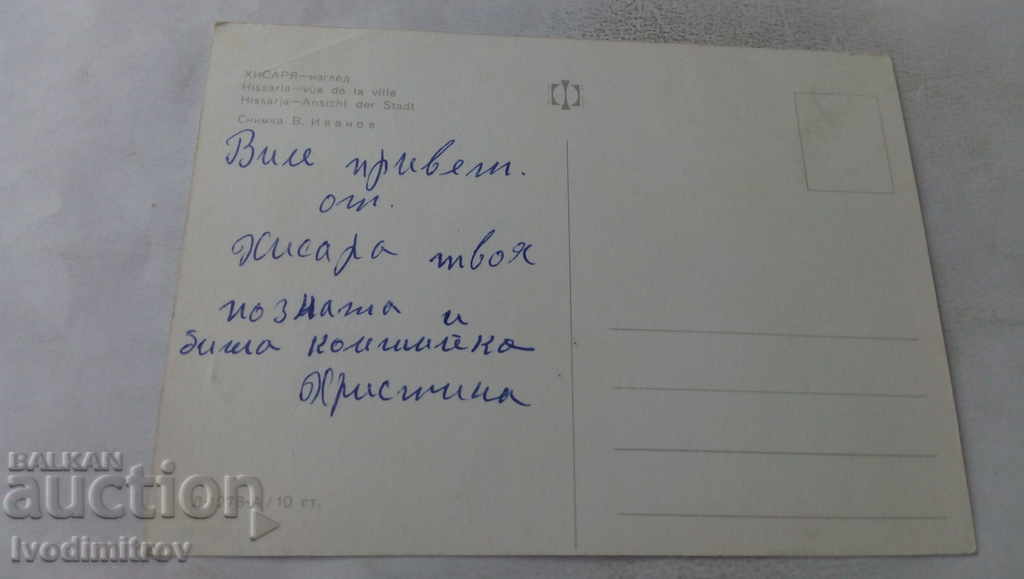 ХИСАРЯ—наглед
Hissaria—vue de la ville
Hissarja—Ansicht der Stadt
Снимка В. Иванов
Виле привет.
от.
Хисара твоя
позната и
бивша комшийка
Христина
/10 ст.
BALKAN
auction
Ivodimitrov